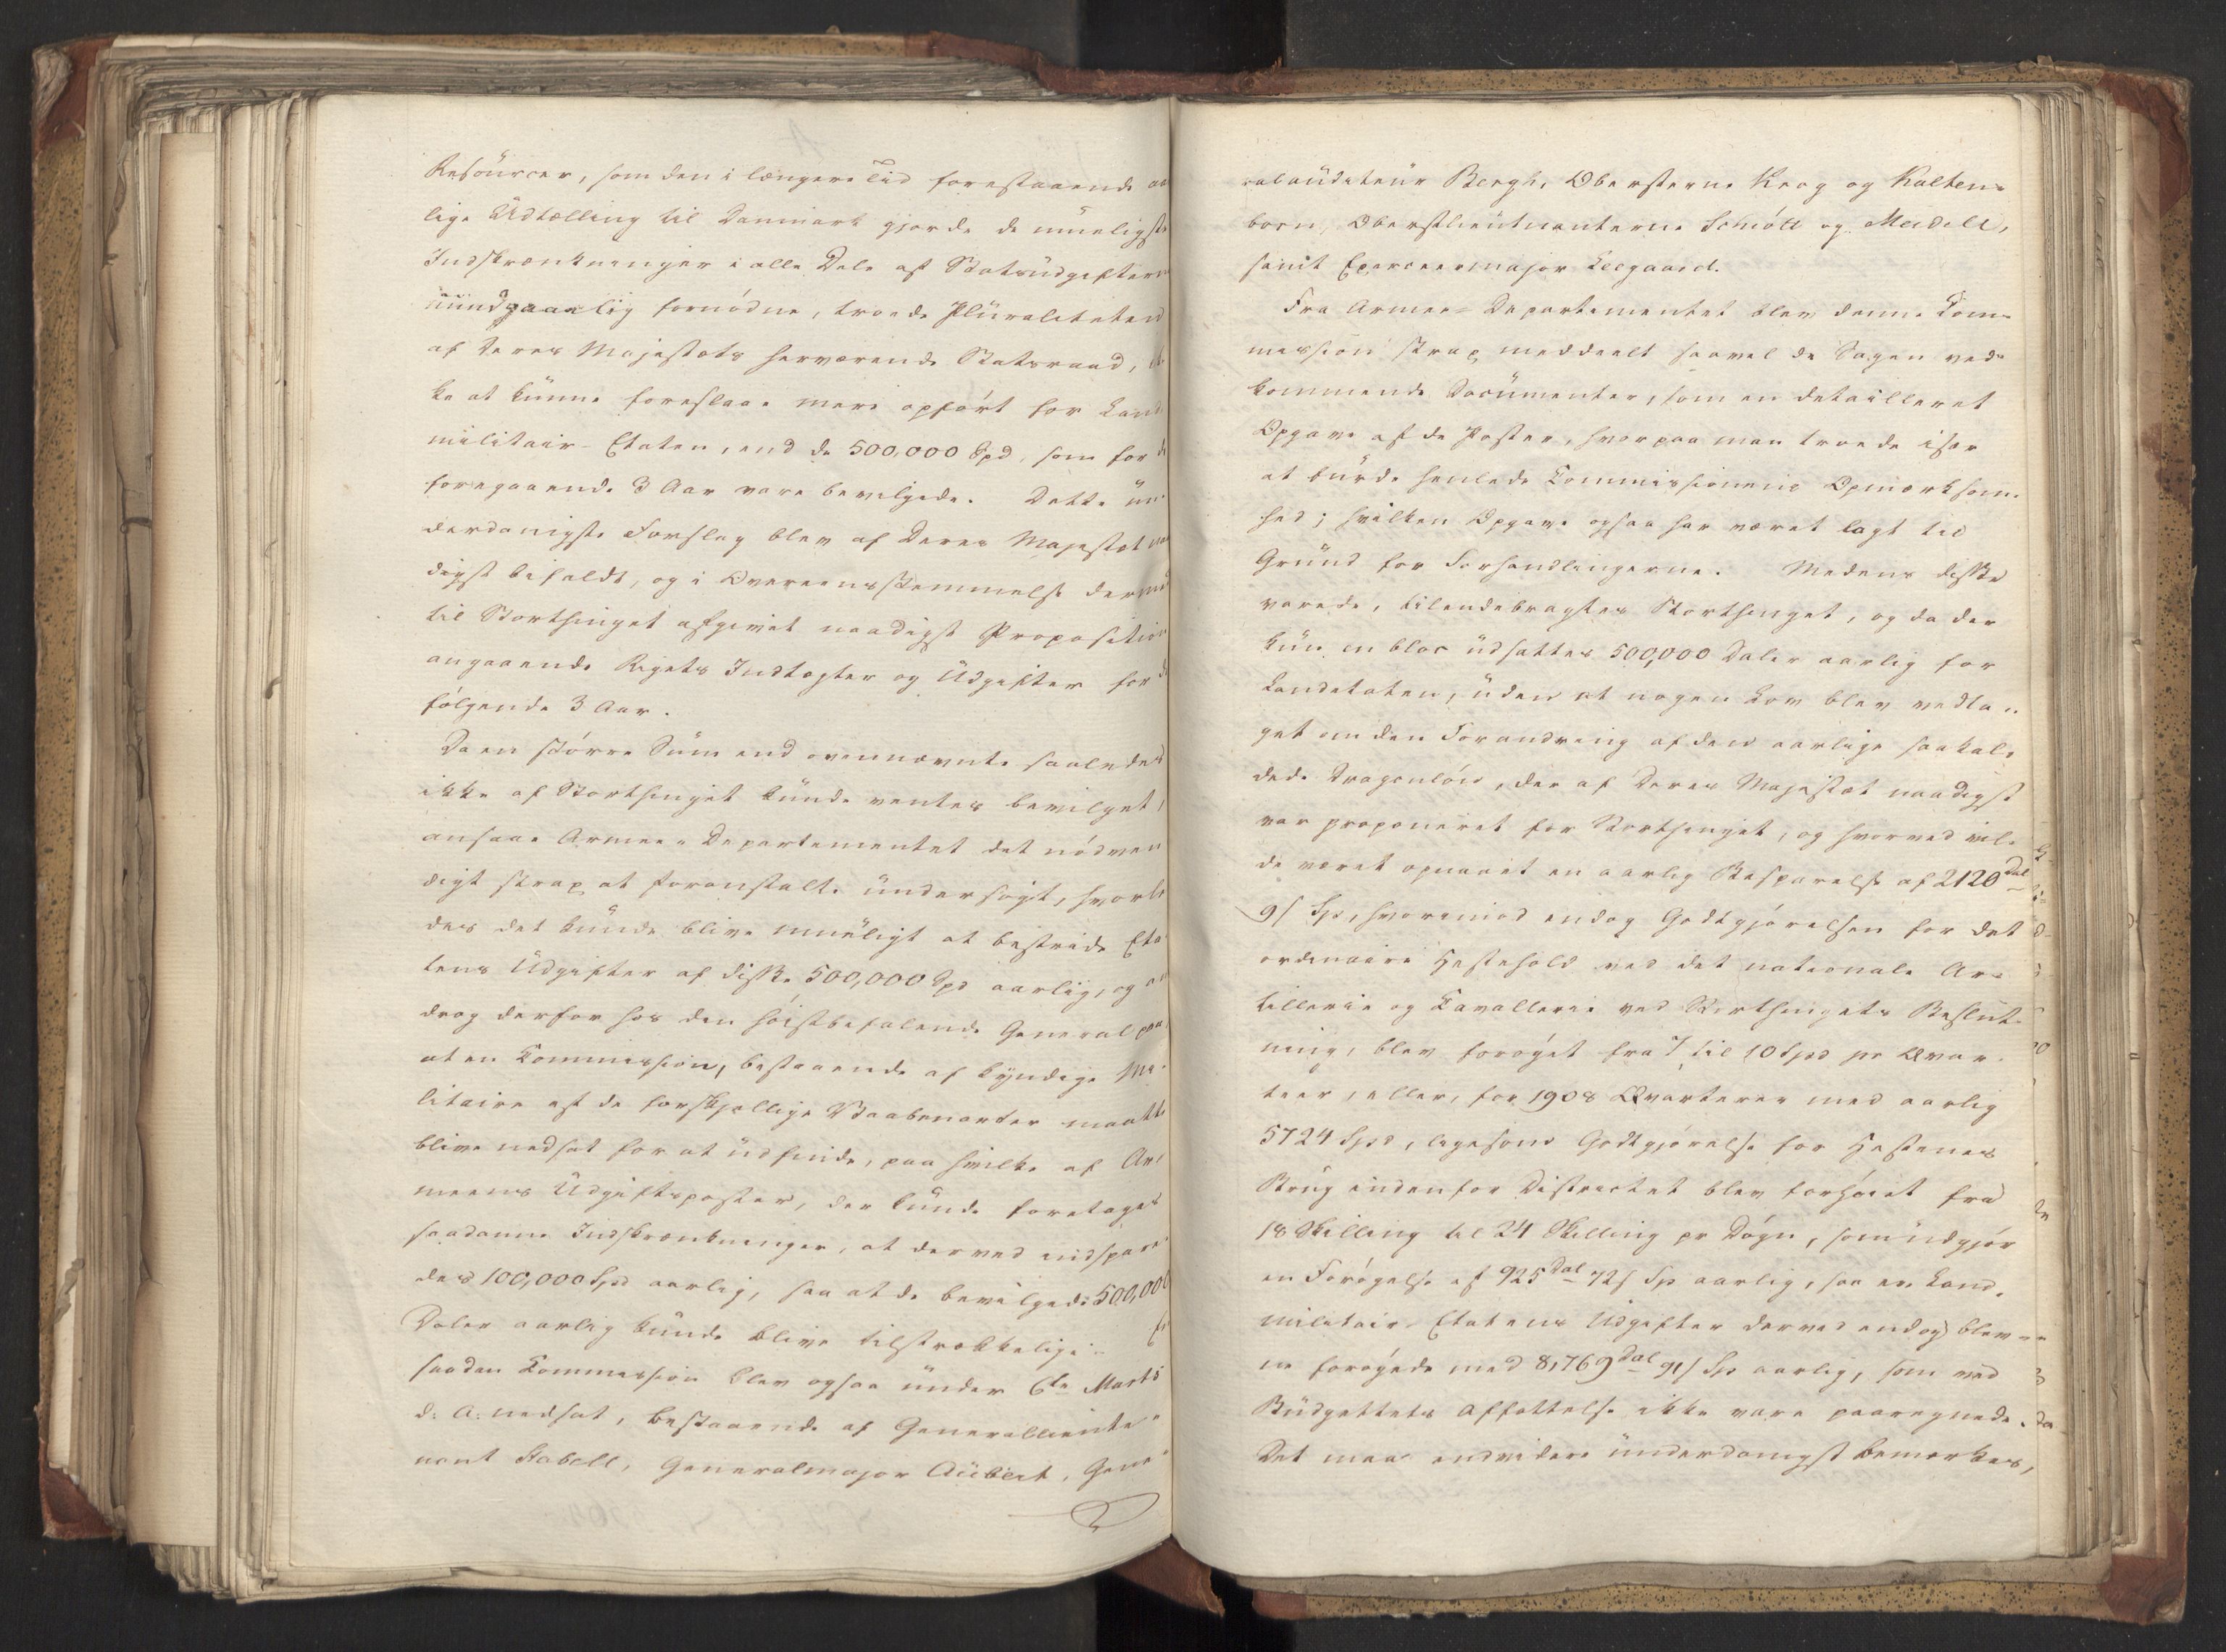 Resourcer, som den i længere Tid forestaaende aar
lige Udtælling til Danmark gjorde de mueligste
Indskrænkninger i alle Dele af Statsudgifterne
uundgaaelig fornødne, troede Pluraliteten
af Deres Majestæts herværende Statsraad, ik
ke at kunne foreslaae mere opført for Land
militair-Etaten, end de 500,000 Spd, som for de
foregaaende 3 Aar vare bevilgede. Dette un
derdanigste Forslag blev af Deres Majestæt naa
digst bifaldt, og i Overeensstemmelse dermed
til Storthinget afgivet naadigst Proposition
angaaende Rigets Indtægter og Udgifter for de
følgende 3 Aar.
Da en større Sum end ovennævnte saaledes
ikke af Storthinget kunde ventes bevilget,
ansaae Armee-Departementet det nødven
digt strax at foranstalte undersøgt, hvorle
des det kunde blive mueligt at bestride Eta
tens Udgifter af disse 500,000 Spd aarlig, og an
drog derfor hos den høistbefalende General paa,
at en Commission, bestaaende af kyndige Mi-
litaire af de forskjellige Vaabenarter maatte
blive nedsat for at udfinde, paa hvilke af Ar-
meens Udgiftsposter, der kunde foretages
saadanne Indskrænkninger, at derved indspare-
des 100,000 Spd aarlig, saa at de bevilgede 500,000
Daler aarlig kunde blive tilstrækkelige. En
saadan Commission blev ogsaa under 6te Marts
d: A: nedsat, bestaaende af Generallieute-
nant Stabell, Generalmajor Aubert, Gene-
ralauditeur Bergh, Obersterne Krog og Kalten-
born, Oberstlieutnanterne Schiøtt og Meidell,
samt Exerceermajor Leegaard.
Fra Armee-Departementet blev denne Com-
mission strax meddeelt saavel de Sagen ved-
kommende Documenter, som en detailleret
Opgave af de Poster, hvorpaa man troede især
at burde henlede Commissionens Opmærksom-
hed; hvilken Opgave ogsaa har været lagt til
Grund for Forhandlingerne. Medens disse
varede, tilendebragtes Storthinget, og da der
kun en bloc udsattes 500,000 Daler aarlig for
Landetaten, uden at nogen Lov blev vedta-
get om den Forandring af den aarlige saakal-
dede Dragonløn, der af Deres Majestæt naadigst
var proponeret for Storthinget, og hvorved vil-
de været opnaaet en aarlig Besparelse af 2120 Dal
9 s Sp, hvorimod endog Godtgjørelsen for det
ordinaire Hestehold ved det nationale Ar-
tillerie og Cavallerie ved Storthingets Beslut-
ning, blev forøget fra 7 til 10 Spd pr Qvar-
teer, eller, for 1908 Qvarterer med aarlig
5724 Spd, ligesom Godtgjørelse for Hestenes
Brug indenfor Districtet blev forhøiet fra
18 Skilling til 24 Skilling pr Døgn, som udgjør
en Forøgelse af 925 Dal 72 s Sp aarlig, saa ere Land-
militair-Etatens Udgifter derved endog blev-
ne forøgede med 8,769 Dal 91 s Sp aarlig, som ved
Budgettets Affattelse ikke vare paaregnede.
Det maa endvidere underdanigst bemærkes,